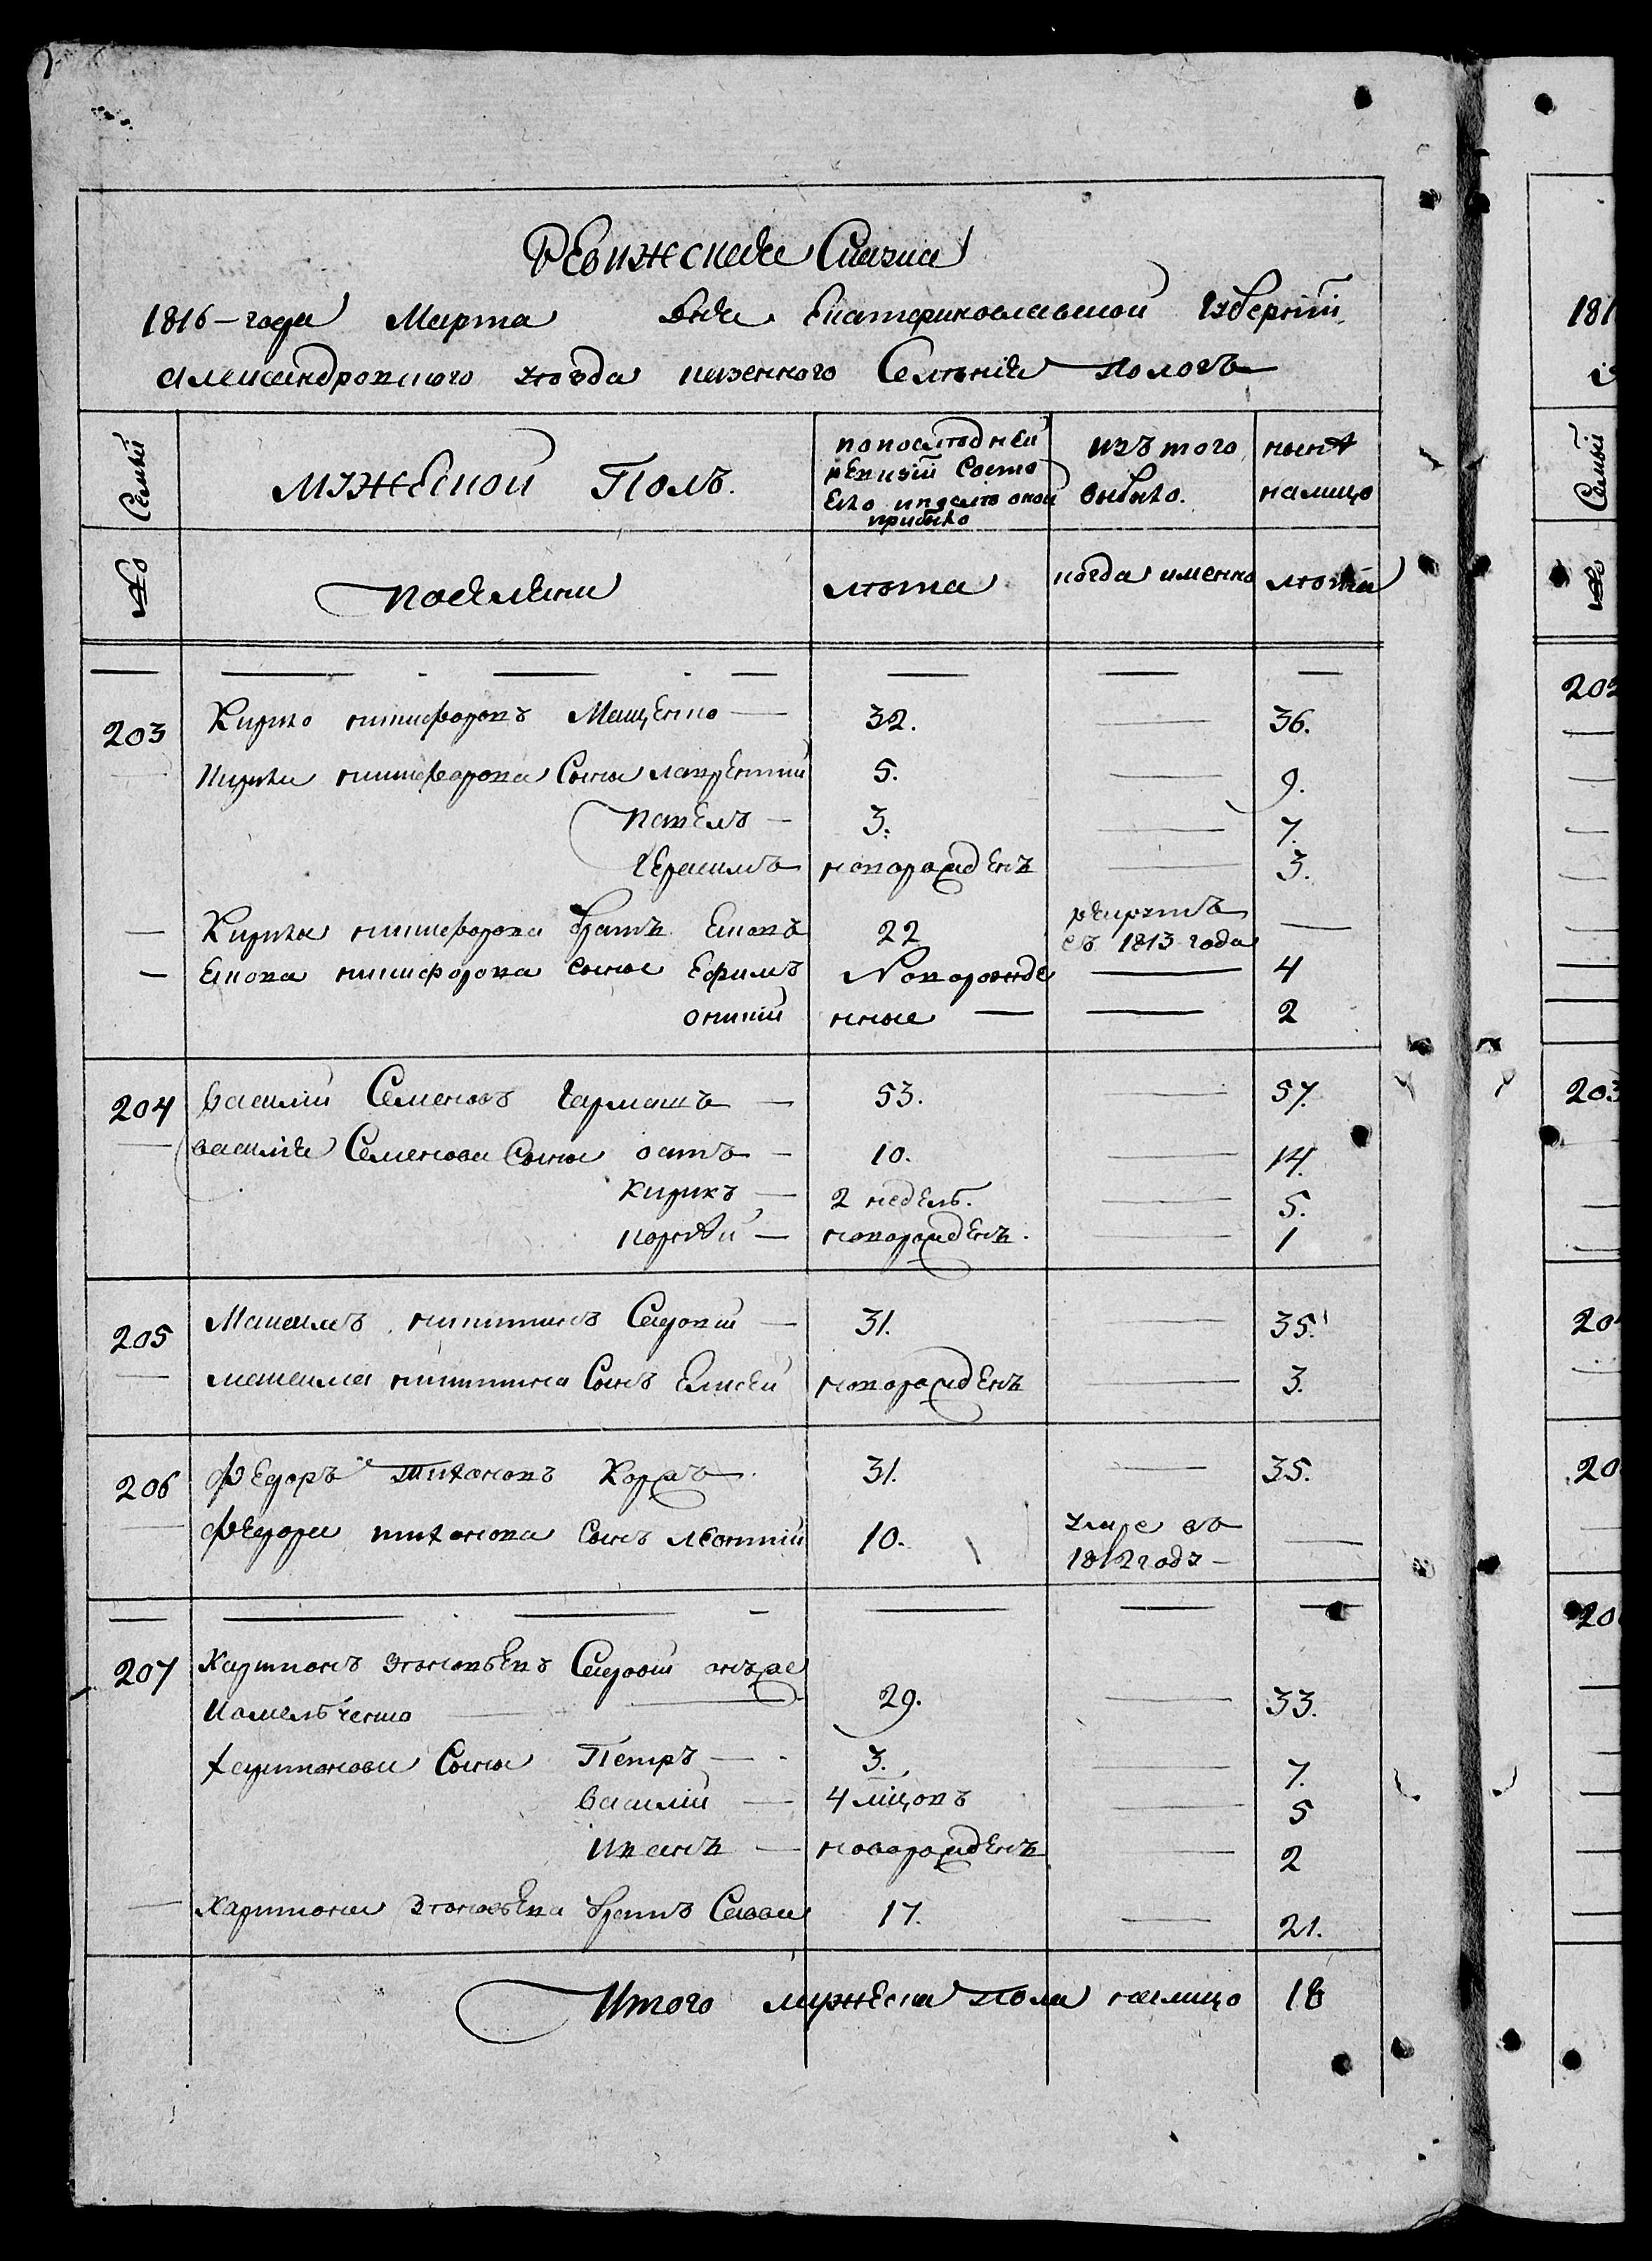 Ревижская Сказка
1816 – года Марта дня Екатериновлавской губерній
Александровского уезда казенного Селенія Пологъ
Семьи
мужеской Полъ.
по последней
ревизій состо
ело и после оной
прибыло
изъ того
выбыло.
ныне
налицо
No
поселяни
лета
когда именно
лета
203 Кирило никифоровъ Мащенко — 32. — 36.
Кирила никифорова Сыны лаврентий 5. — 9.
павелъ — 3. — 7.
герасимъ новорожденъ — 3.
— Кирила никифорова братъ Яковъ 22 рекрутъ —
съ 1813 года
— Якова никифорова сыны Ефимъ Новорожде — 4
нные — — 2
204 василий Семеновъ гармашъ — 53. — 57.
— василия Семенова Сыны остапъ — 10. — 14.
Кирикъ — 2 недель. — 5.
корней — новорожденъ. — 1
205 Максимъ никитинъ Седокий — 31. — 35.
— максима никитина Сынъ Елисей новорожденъ — 3.
206 Федоръ тихоновъ Коржъ 31. — 35.
— Федора тихонова сынъ леонтий 10. умре въ —
1812 году —
207 Харитонъ Седовий онъже
Комельченко — 29. — 33.
харитонова Сыны Петръ — 3. — 7.
василий — 4 мцовъ — 5
иванъ — новорожденъ — 2
— харитона братъ Савва 17. — 21.
Итого мужеска пола налицо 18
181
Семьи
No
202
203
204
20
20